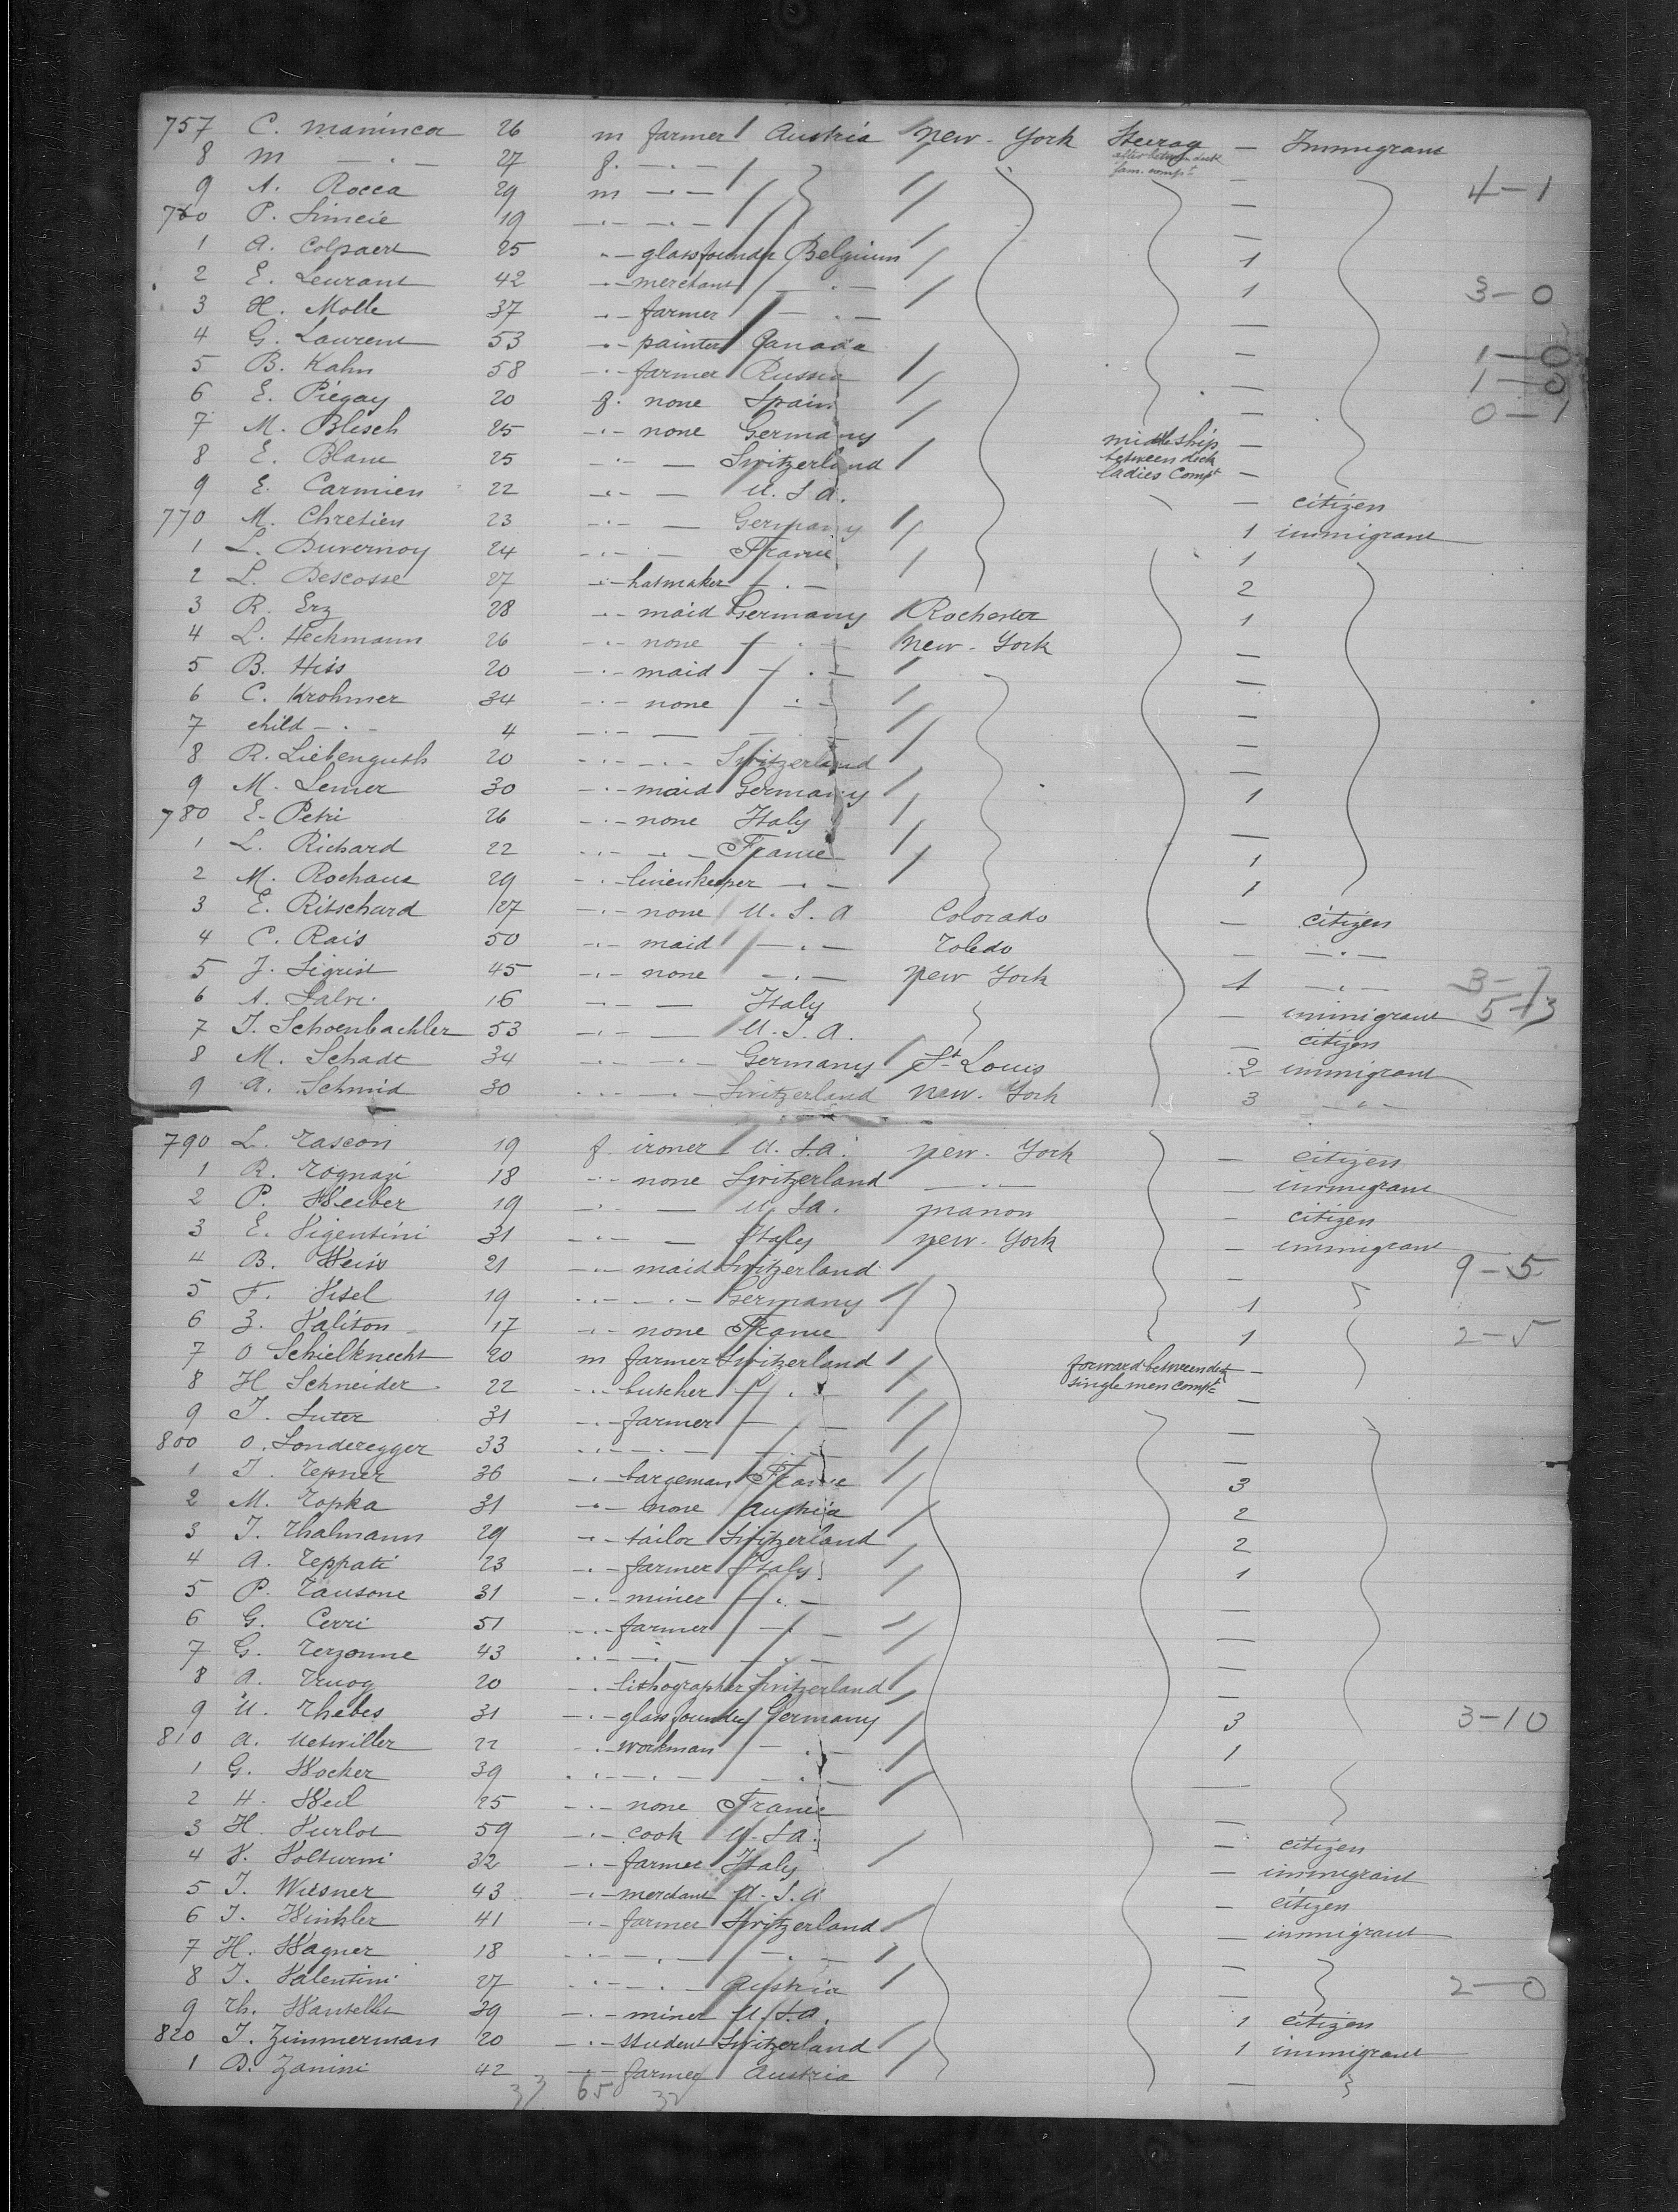 757 C. Manincor 26 m farmer Austria New-York Steerag — Immigrant
8 M —·— 27 f. —·— after between deck fam. compt —
9 A. Rocca 29 m —·— — 4—1
760 P. Simcic 19 —·— —·— —
1 A. Colpaert 25 —·— glassfounder Belgium 1
2 E. Leurant 42 —·— merchant —·— 1 3—0
3 H. Molle 37 —·— farmer —·— —
4 G. Laurent 53 —·— painter Canada — 1—0
5 B. Kahn 58 —·— farmer Russia — 1—0
6 E. Piégay 20 f. none Spain — 0—1
7 M. Blesch 25 —·— none Germany middleship —
8 E. Blanc 25 —·— — Switzerland between deck ladies Compt —
9 E. Carmien 22 —·— — U.S.A. — citizen
770 M. Chretien 23 —·— — Germany 1 immigrant
1 L. Duvernoy 24 —·— — France 1
2 L. Descosse 27 —·— hatmaker —·— 2
3 R. Erz 28 —·— maid Germany Rochester 1
4 L. Heckmann 26 —·— none —·— New-York —
5 B. Hiss 20 —·— maid —·— —
6 C. Krohmer 34 —·— none —·— —
7 child —·— 4 —·— — —·— —
8 R. Liebenguth 20 —·— —·— Switzerland —
9 M. Lemer 30 —·— maid Germany 1
780 E. Petri 26 —·— none Italy —
1 L. Richard 22 —·— —·— France 1
2 M. Rochaus 29 —·— linenkeeper —·— 1
3 E. Ritschard 27 —·— none U.S.A Colorado — citizen
4 C. Rais 50 —·— maid —·— Toledo — —·—
5 J. Sigrist 45 —·— none —·— New York 1 —·— 3—7
6 A. Salvi 16 —·— — Italy — immigrant 5-13
7 J. Schoenbachler 53 —·— — U.S.A. — citizen
8 M. Schadt 34 —·— —·— Germany St Louis 2 immigrant
9 A. Schmid 30 —·— —·— Switzerland New-York 3 —·—
790 L. Tascon 19 f. ironer U.S.A. New-York — citizen
1 R. Tognazi 18 —·— none Switzerland —·— — immigrant
2 P. Weiber 19 —·— — U.S.A. manon — citizen
3 E. Vigentini 31 —·— — Italy New-York — immigrant
4 B. Weiss 21 —·— maid Switzerland — 9—5
5 F. Visel 19 —·— —·— Germany 1
6 Z. Valiton 17 —·— none France 1 2—5
7 O Schielknecht 20 m farmer Switzerland forward between deck —
8 H Schneider 22 —·— butcher —·— single men compt —
9 J. Suter 31 —·— farmer —·— —
800 O. Sonderegger 33 —·— —·— —·— —
1 J. Tepner 36 —·— bargeman France 3
2 M. Topka 31 —·— none Austria 2
3 J. Thalmann 29 —·— tailor Switzerland 2
4 A. Teppati 23 —·— farmer Italy 1
5 P. Tausone 31 —·— miner —·— —
6 G. Cerri 51 —·— farmer —·— —
7 G. Terzonne 43 —·— —·— —·— —
8 A. Truog 20 —·— lithographer Switzerland —
9 U. Thebes 31 —·— glassfounder Germany 3 3—10
810 A. Uetwiller 22 —·— workman —·— 1
1 G. Wocker 39 —·— —·— —·— —
2 H. Weil 25 —·— none France —
3 H. Vurlot 59 —·— cook U.S.A. — citizen
4 V. Volturni 32 —·— farmer Italy — immigrant
5 J. Wiesner 43 —·— merchant U.S.A — citizen
6 J. Winkler 41 —·— farmer Switzerland — immigrant
7 H. Wagner 18 —·— —·— —·— —
8 J. Valentini 27 —·— —·— Austria — 2—0
9 Th. Wauteller 39 —·— miner U.S.A. 1 citizen
820 J. Zimmerman 20 —·— student Switzerland 1 immigrant
1 B. Zanini 42 —·— farmer Austria —
33 65 32